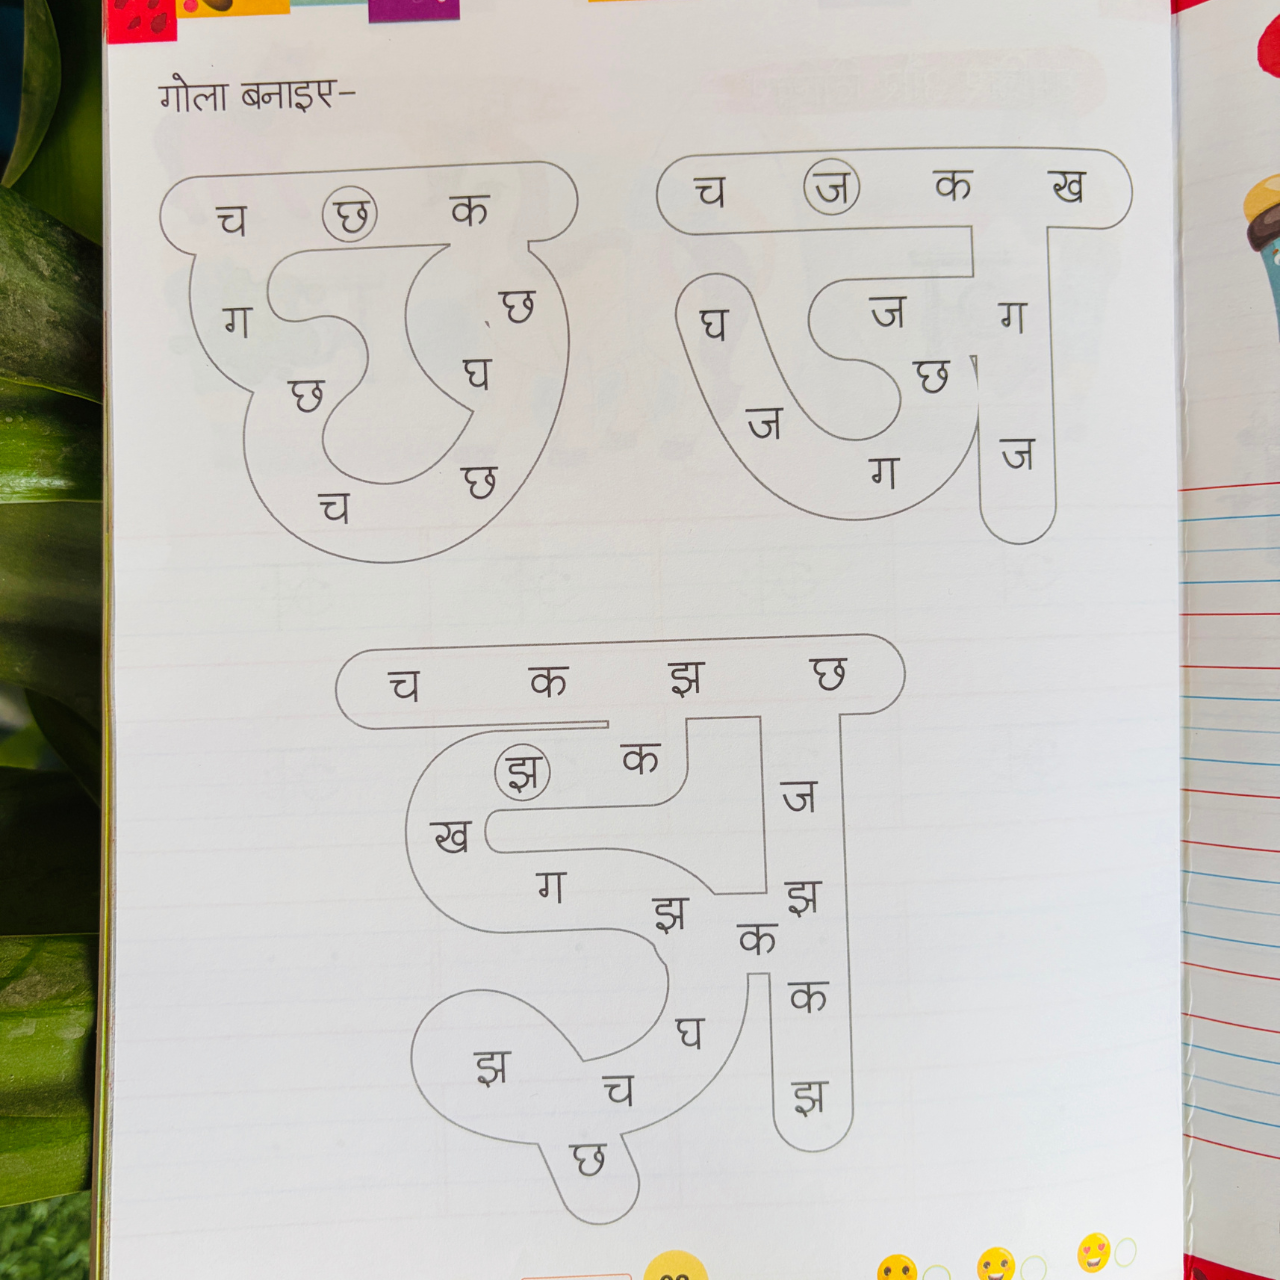 गोला बनाइए-
च छ क
ग छ
छ घ
च छ
च ज क ख
घ ज ग
ज छ
ग ज
च क झ छ
झ क ज
ख
ग झ झ
क
घ क
झ च झ
छ